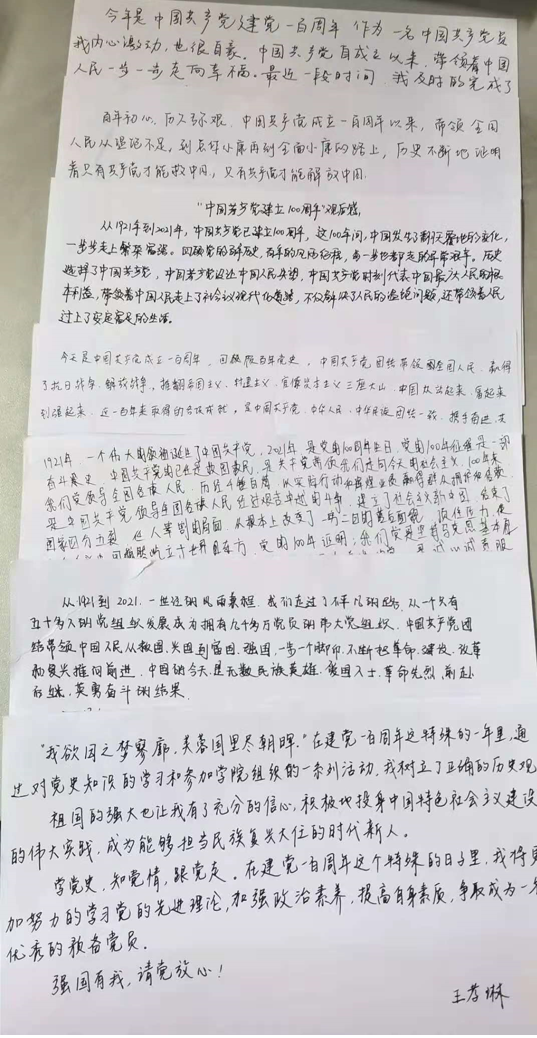 今年是中国共产党建党一百周年 作为一名中国共产党员
我内心激动,也很自豪。中国共产党自成立以来,带领着中国
人民一步一步走向幸福。最近一段时间,我及时的完成了
百年初心,历久弥艰,中国共产党成立一百周年以来,带领全国
人民从温饱不足,到总体小康再到全面小康的路上,历史不断地证明
着只有共产党才能救中国,只有共产党才能解放中国.
“中国共产党建立100周年”观后感
从1921年到2021年,中国共产党已建立100周年,这100年间,中国发生了翻天覆地的变化,
一步步走上繁荣富强。回顾党的辉煌历史,百年的风雨历程,每一步也都走的非常艰辛。历史
选择了中国共产党,中国共产党没让中国人民失望,中国共产党时刻代表中国最广大人民的根
本利益,带领着中国人民走上了社会主义现代化道路,不仅解决了人民的温饱问题,还带领着人民
过上了安定富足的生活。
今天是中国共产党成立一百周年,回顾百年党史,中国共产党团结带领全国人民,赢得
了抗日战争,解放战争,推翻帝国主义、封建主义、官僚资本主义三座大山,中国从站起来,富起来
到强起来,近一百年来取得的各项成就,是中国共产党、中国人民、中华民族团结一致,携手前进,共
1921年,一个伟大的政党诞生了中国共产党,2021年,是党的100年生日,党的100年征程是一部
奋斗史,
我们党领导全国各族人民,历经千难百阻,
是中国共产党领导全国各族人民经过艰苦卓绝的斗争,建立了社会主义新中国,结束了
党的100年证明:我们
从1921到2021,一世纪的风雨兼程,我们走过了不平凡的路,从一个只有
五十多人的党组织发展成为拥有九千多万党员的伟大党组织,中国共产党团
结带领中国人民从救国、兴国到富国、强国,一步一个脚印,不断把革命、建设、改革
和复兴推向前进,中国的今天是无数民族英雄、爱国人士、革命先烈,前赴
后继,英勇奋斗的结果.
“我欲因之梦寥廓,芙蓉国里尽朝晖。”在建党一百周年这特殊的一年里,通
过对党史知识的学习和参加学院组织的一系列活动,我树立了正确的历史观
祖国的强大也让我有了充分的信心,积极地投身中国特色社会主义建设
的伟大实践,成为能够担当民族复兴大任的时代新人。
学党史,知党情,跟党走。在建党一百周年这个特殊的日子里,我将更
加努力的学习党的先进理论,加强政治素养,提高自身素质,争取成为一名
优秀的预备党员.
强国有我,请党放心!